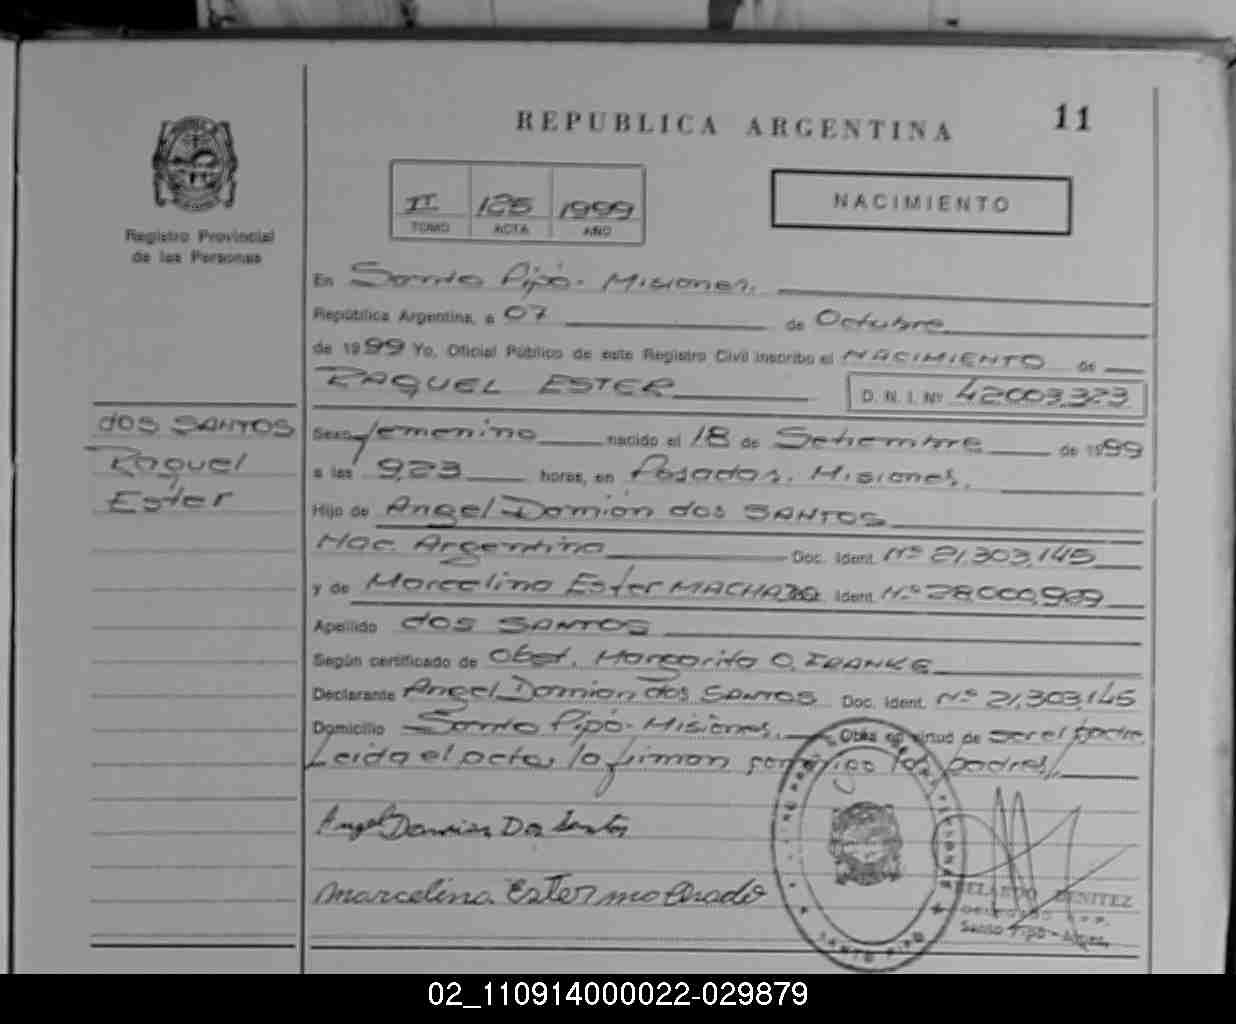 REPUBLICA ARGENTINA
11
Registro Provincial
de las Personas
II 125 1999
TOMO ACTA AÑO
NACIMIENTO
En Santo Pipó - Misiones.
República Argentina, a 07 de Octubre
de 1999 Yo, Oficial Público de este Registro Civil inscribo el NACIMIENTO de
RAQUEL ESTER D. N. I. Nº 42.003.323
dos SANTOS
Raquel
Ester
Sexo femenino nacido el 18 de Setiembre de 1999
a las 9,23 horas, en Posadas, Misiones,
Hijo de Angel Damián dos SANTOS
Nac. Argentina Doc. Ident. Nº 21.303.145
y de Marcelina Ester MACHADO Ident. Nº 28.000.989
Apellido dos SANTOS
Según certificado de Obst. Margarita O. FRANKE
Declarante Angel Damián dos SANTOS Doc. Ident. Nº 21.303.145
Domicilio Santo Pipó - Misiones, Obra en virtud de ser el padre
Leida el acta, la firman conmigo los padres
Angel Damian Dos Santos
Marcelina Ester Machado
BENITEZ
Santo Pipó - Mnes.
SANTO PIPO
02_110914000022-029879